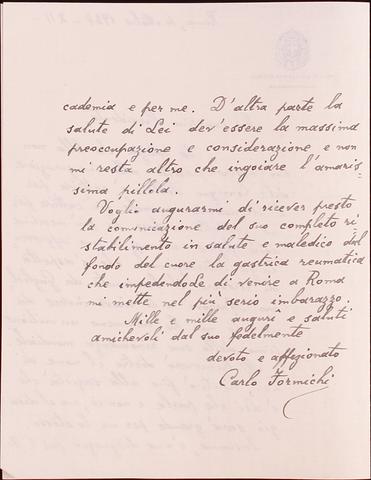 cademia e per me. D'altra parte la
salute di Lei dev'essere la massima
preoccupazione e considerazione e non
mi resta altro che ingoiare l'amaris=
sima pillola.
Voglio augurarmi di ricever presto
la comunicazione del suo completo ri=
stabilimento in salute e maledico dal
fondo del cuore la gastrica reumatica
che impedendoLe di venire a Roma
mi mette nel più serio imbarazzo.
Mille e mille augurî e saluti
amichevoli dal suo fedelmente
devoto e affezionato
Carlo Formichi